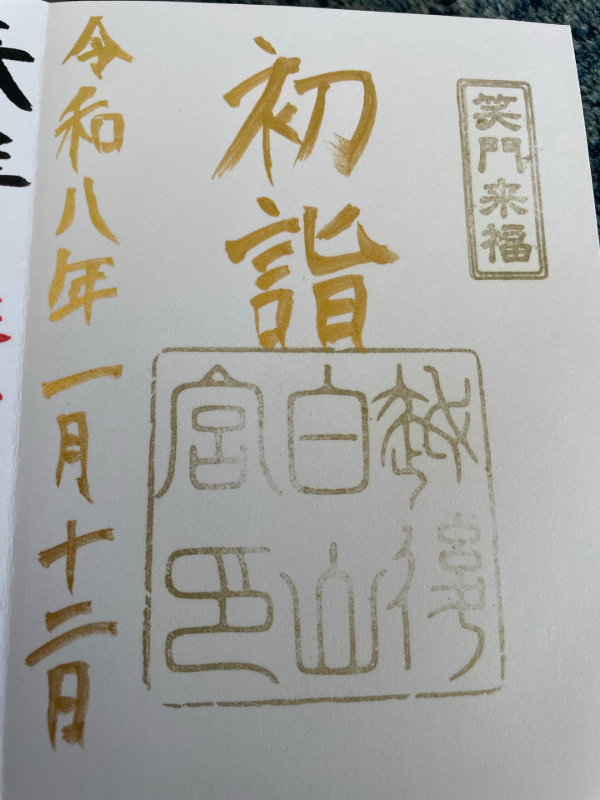 笑門来福
初詣
越後
白山
宮印
令和八年一月十二日